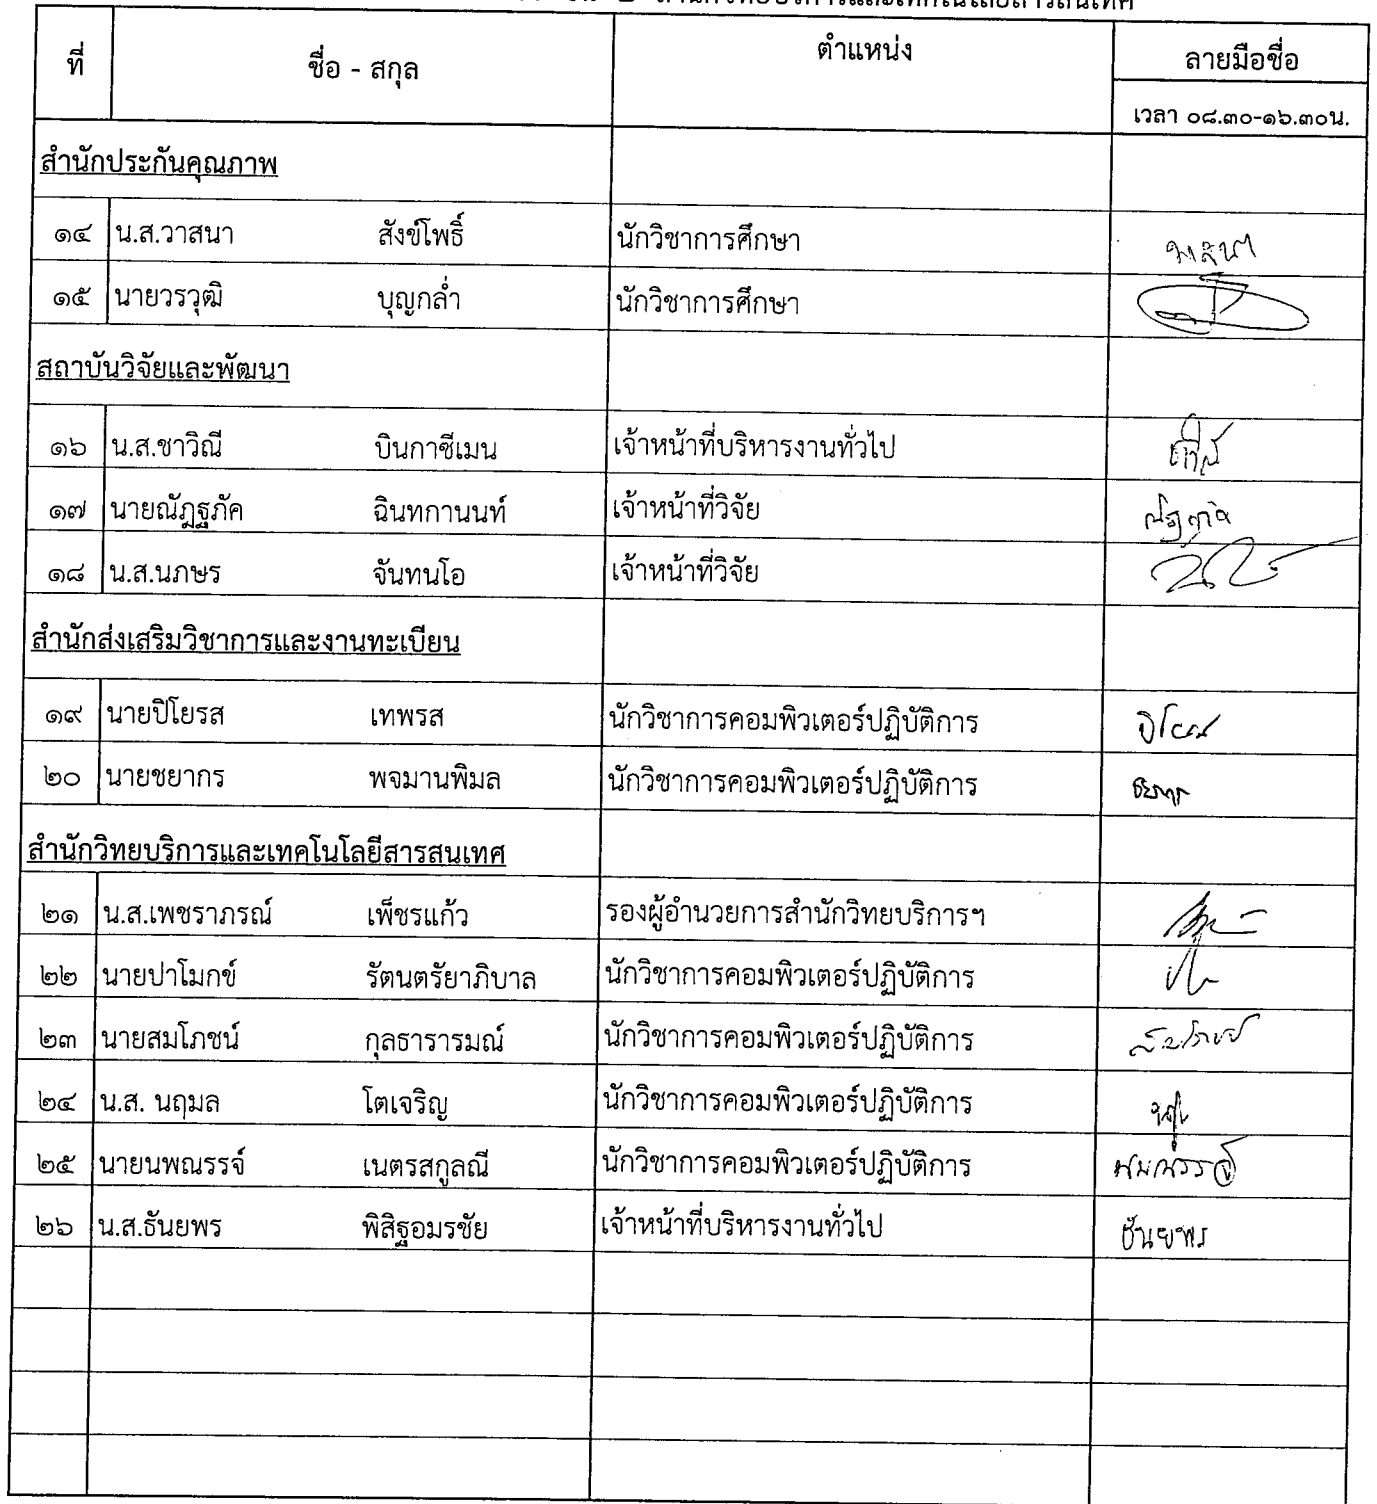 สำนักวิทยบริการและเทคโนโลยีสารสนเทศ
ที่ ชื่อ - สกุล ตำแหน่ง ลายมือชื่อ
เวลา ๐๘.๓๐-๑๖.๓๐น.
สำนักประกันคุณภาพ
๑๔ น.ส.วาสนา สังข์โพธิ์ นักวิชาการศึกษา วาสนา
๑๕ นายวรวุฒิ บุญกล่ำ นักวิชาการศึกษา
สถาบันวิจัยและพัฒนา
๑๖ น.ส.ชาวิณี บินกาซีเมน เจ้าหน้าที่บริหารงานทั่วไป
๑๗ นายณัฏฐภัค ฉินทกานนท์ เจ้าหน้าที่วิจัย
๑๘ น.ส.นภษร จันทนโอ เจ้าหน้าที่วิจัย
สำนักส่งเสริมวิชาการและงานทะเบียน
๑๙ นายปิโยรส เทพรส นักวิชาการคอมพิวเตอร์ปฏิบัติการ
๒๐ นายชยากร พจมานพิมล นักวิชาการคอมพิวเตอร์ปฏิบัติการ
สำนักวิทยบริการและเทคโนโลยีสารสนเทศ
๒๑ น.ส.เพชราภรณ์ เพ็ชรแก้ว รองผู้อำนวยการสำนักวิทยบริการฯ
๒๒ นายปาโมกข์ รัตนตรัยาภิบาล นักวิชาการคอมพิวเตอร์ปฏิบัติการ
๒๓ นายสมโภชน์ กุลธารารมณ์ นักวิชาการคอมพิวเตอร์ปฏิบัติการ
๒๔ น.ส. นฤมล โตเจริญ นักวิชาการคอมพิวเตอร์ปฏิบัติการ
๒๕ นายนพณรรจ์ เนตรสกูลณี นักวิชาการคอมพิวเตอร์ปฏิบัติการ นพณรรจ์
๒๖ น.ส.ธันยพร พิสิฐอมรชัย เจ้าหน้าที่บริหารงานทั่วไป ธันยพร